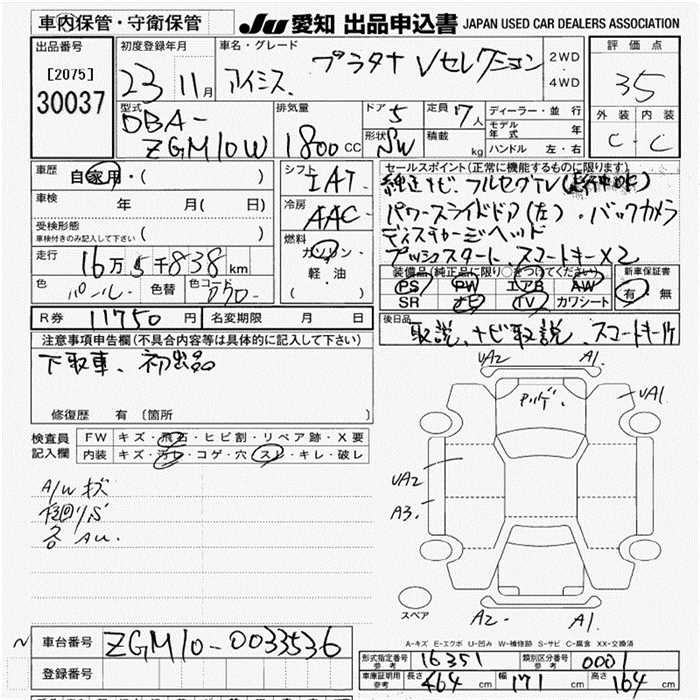 車内保管・守衛保管 JU 愛知 出品申込書 JAPAN USED CAR DEALERS ASSOCIATION
出品番号 初度登録年月 車名・グレード 評価点
[2075] 23 11月 アイシス プラタナ Vセレクション 2WD・4WD 35
30037 外装 内装
型式 排気量 ドア 5 定員 7人 ディーラー・並行
DBA- モデル年式 年 C・C
ZGM10W 1800cc 形状 SW 積載 kg ハンドル 左・右
車歴 自家用・( ) シフト IAT セールスポイント(正常に機能するものに限ります)
純正ナビ、フルセグTV(走行中OK)
車検 年 月( 日) 冷房 AAC パワースライドドア(左)・バックカメラ
受検形態 ( ) ディスチャージヘッド
車検付きのみ記入して下さい 燃料 ガソリン・ プッシュスタート、スマートキーX2
走行 16万5千838km 軽・油 装備品(純正品に限り○をつけてください) 新車保証書
色 パール 色替 色コード ( ) PS PW エアB AW 有・無
SR ナビ TV カワシート
R券 11750円 名変期限 月 日 後日品
注意事項申告欄(不具合内容等は具体的に記入して下さい) 取説、ナビ取説、スマートキー1ケ
下取車、初出品
修復歴 有 〔箇所 〕
検査員記入欄 FW キズ・飛石・ヒビ割・リペア跡・X要
内装 キズ・汚レ・コゲ・穴・スレ・キレ・破レ
UA2 A1
UA1
UA2
A3
A/Wキズ
下廻りS
各AU
スペア
A2 A1
A-キズ E-エクボ U-凹み W-補修跡 S-サビ C-腐食 XX-交換済
車台番号 ZGM10-0033536
登録番号
形式指定番号 参考 16351 類別区分番号 参考 0001
車庫証明用 参考 長さ 464cm 幅 171cm 高さ 164cm